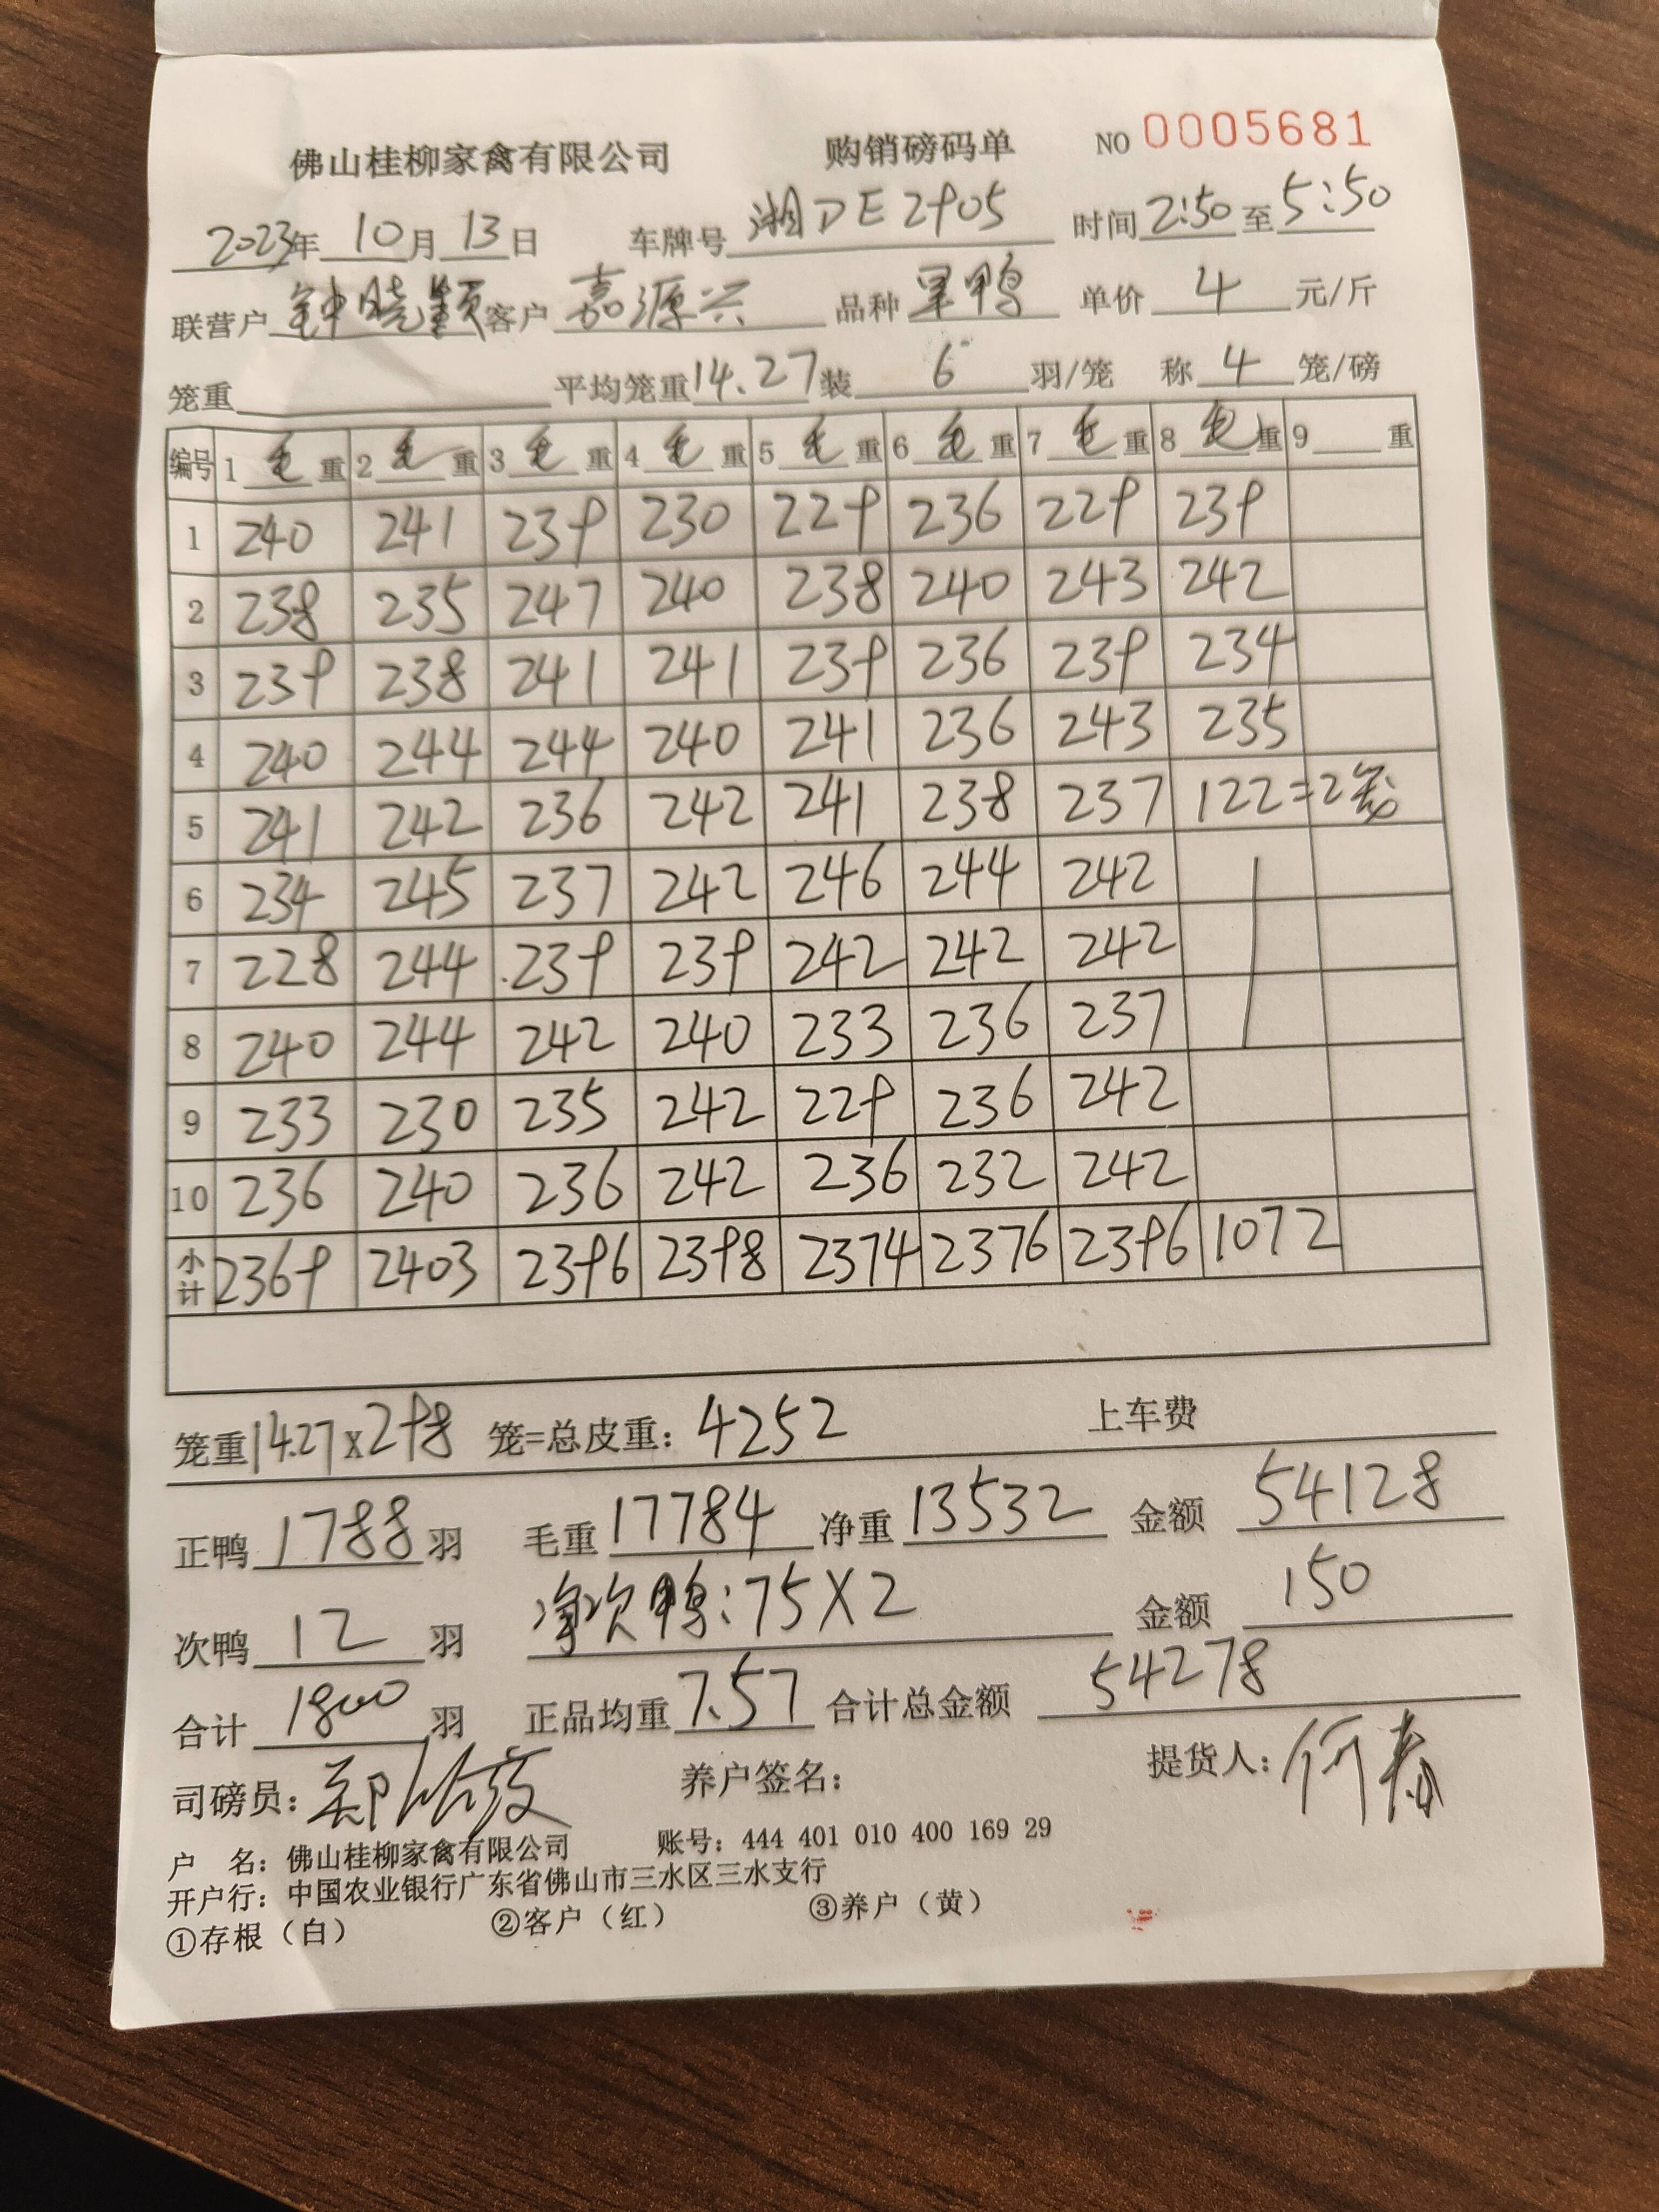 佛山桂柳家禽有限公司 购销磅码单 NO 0005681
2023年 10月 13日 车牌号 湘DE2905 时间 2:50 至 5:50
联营户 钟晓颖 客户 嘉源兴 品种 鸭 单价 4 元/斤
笼重 平均笼重 14.27 装 6 羽/笼 称 4 笼/磅
编号 1 毛 重 2 毛 重 3 毛 重 4 毛 重 5 毛 重 6 毛 重 7 毛 重 8 毛 重 9 重
1 240 241 239 230 229 236 229 239
2 238 235 247 240 238 240 243 242
3 239 238 241 241 239 236 239 234
4 240 244 244 240 241 236 243 235
5 241 242 236 242 241 238 237 122=2笼
6 234 245 237 242 246 244 242
7 228 244 239 239 242 242 242
8 240 244 242 240 233 236 237
9 233 230 235 242 229 236 242
10 236 240 236 242 236 232 242
小计 2369 2403 2396 2398 2374 2376 2396 1072
笼重 14.27x298 笼=总皮重: 4252 上车费
正鸭 1788 羽 毛重 17784 净重 13532 金额 54128
次鸭 12 羽 净次鸭:75X2 金额 150
合计 1800 羽 正品均重 7.57 合计总金额 54278
司磅员: 养户签名: 提货人:
户 名: 佛山桂柳家禽有限公司 账号: 444 401 010 400 169 29
开户行: 中国农业银行广东省佛山市三水区三水支行
①存根（白） ②客户（红） ③养户（黄）